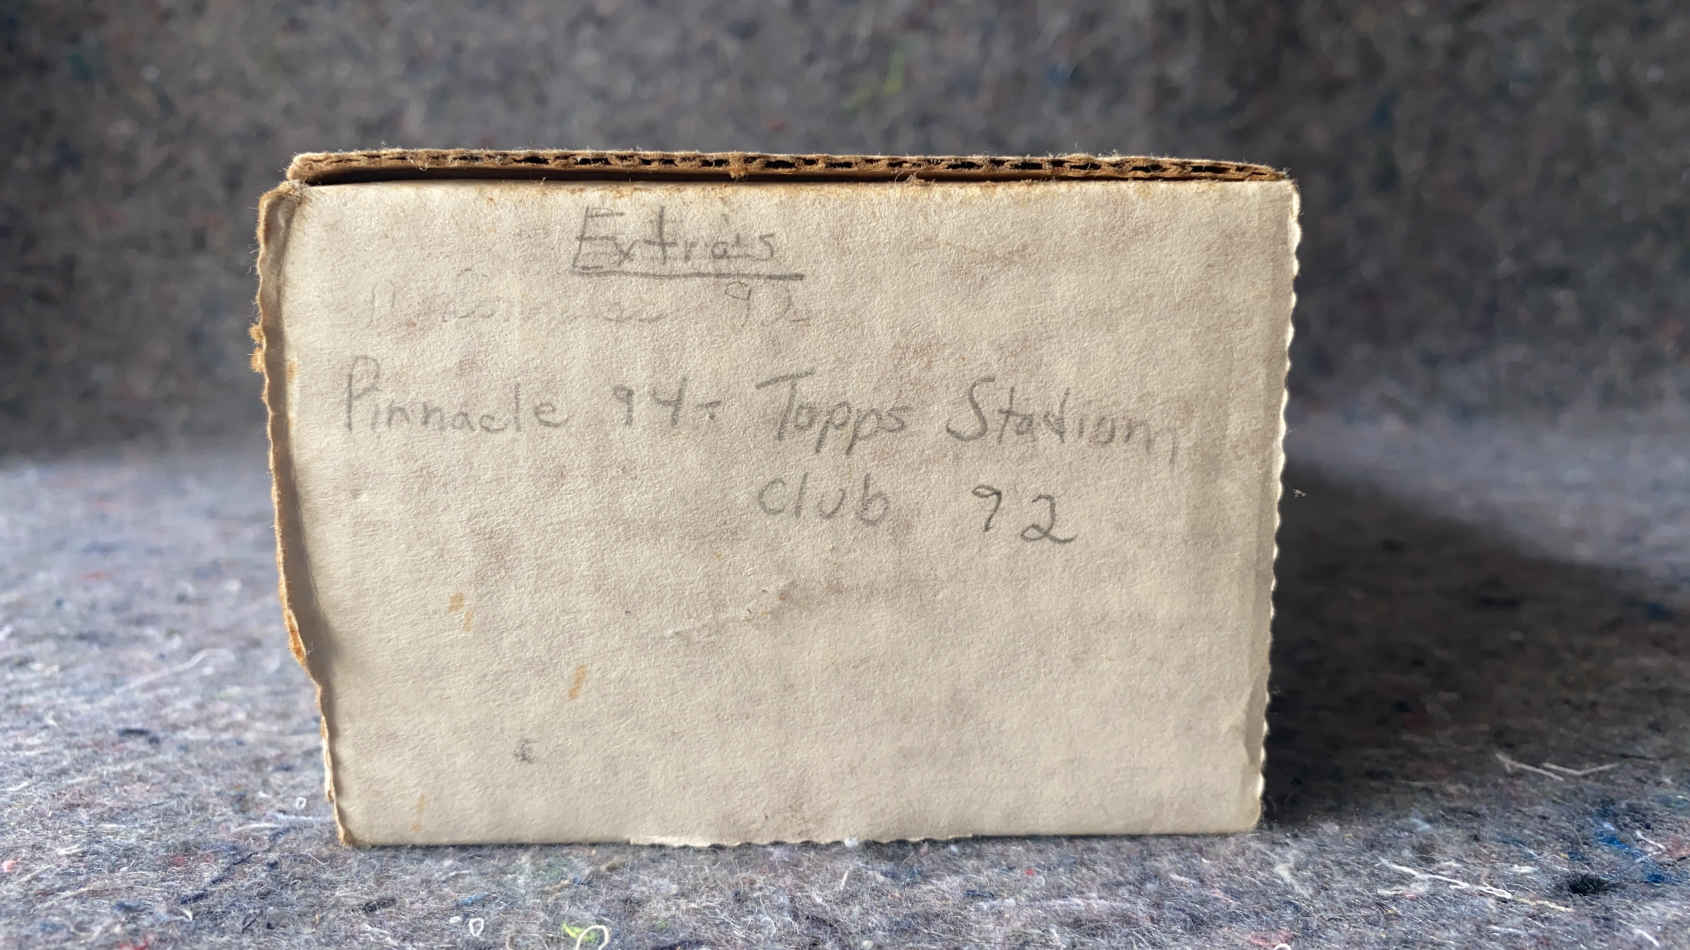 Extra's
92
Pinnacle 94- Topps Stadium
club 92